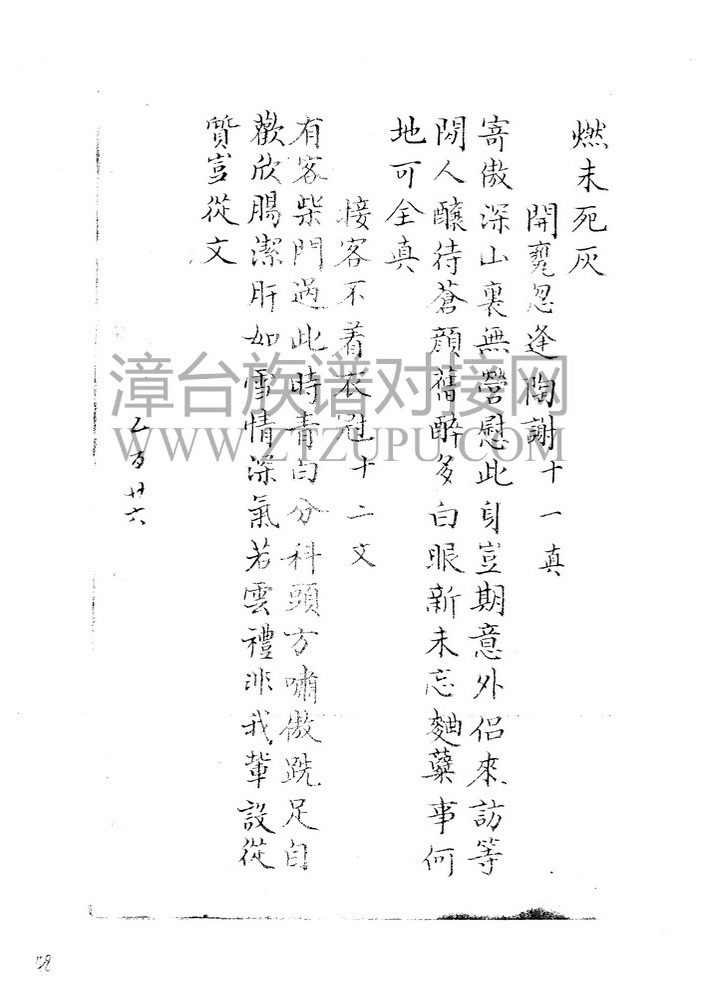 燃未死灰
開甕忽逢陶謝十一真
寄傲深山裏無營慰此身豈期意外侣來訪等
閒人釀待蒼顔舊醉多白眼新未忘麯蘗事何
地可全真
接客不着衣冠十二文
有客柴門過此時青白分科頭方嘯傲跣足自
歡欣腸潔肝如雪情深氣若雲禮非我輩設從
質豈從文
乙百廿六
漳台族谱对接网
WWW.ZTZUPU.COM